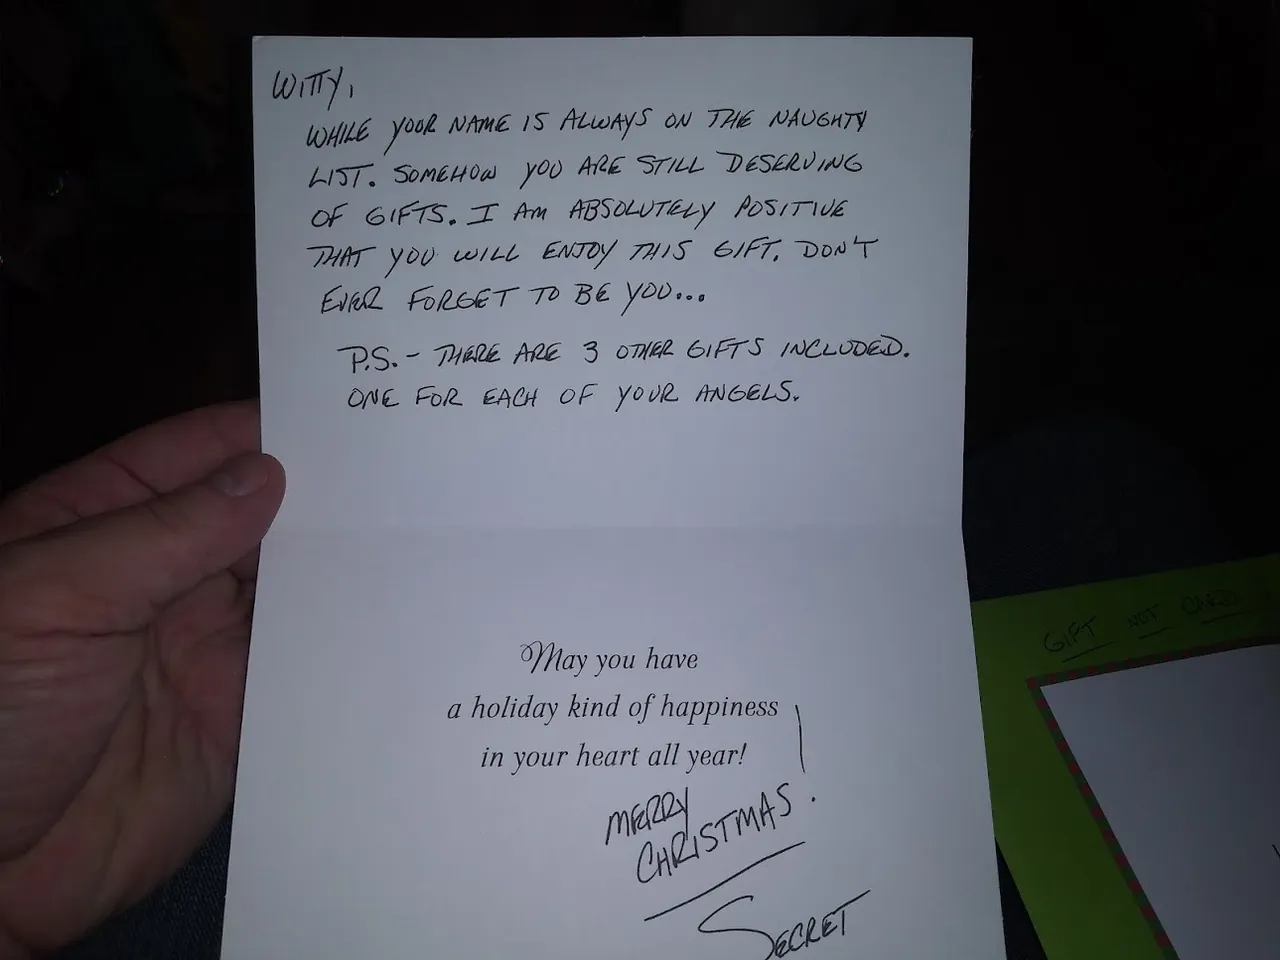 WITTY,
WHILE YOUR NAME IS ALWAYS ON THE NAUGHTY
LIST. SOMEHOW YOU ARE STILL DESERVING
OF GIFTS. I AM ABSOLUTELY POSITIVE
THAT YOU WILL ENJOY THIS GIFT. DON'T
EVER FORGET TO BE YOU...
P.S. - THERE ARE 3 OTHER GIFTS INCLUDED.
ONE FOR EACH OF YOUR ANGELS.
May you have
a holiday kind of happiness
in your heart all year!
MERRY
CHRISTMAS!
SECRET
GIFT NOT CARD